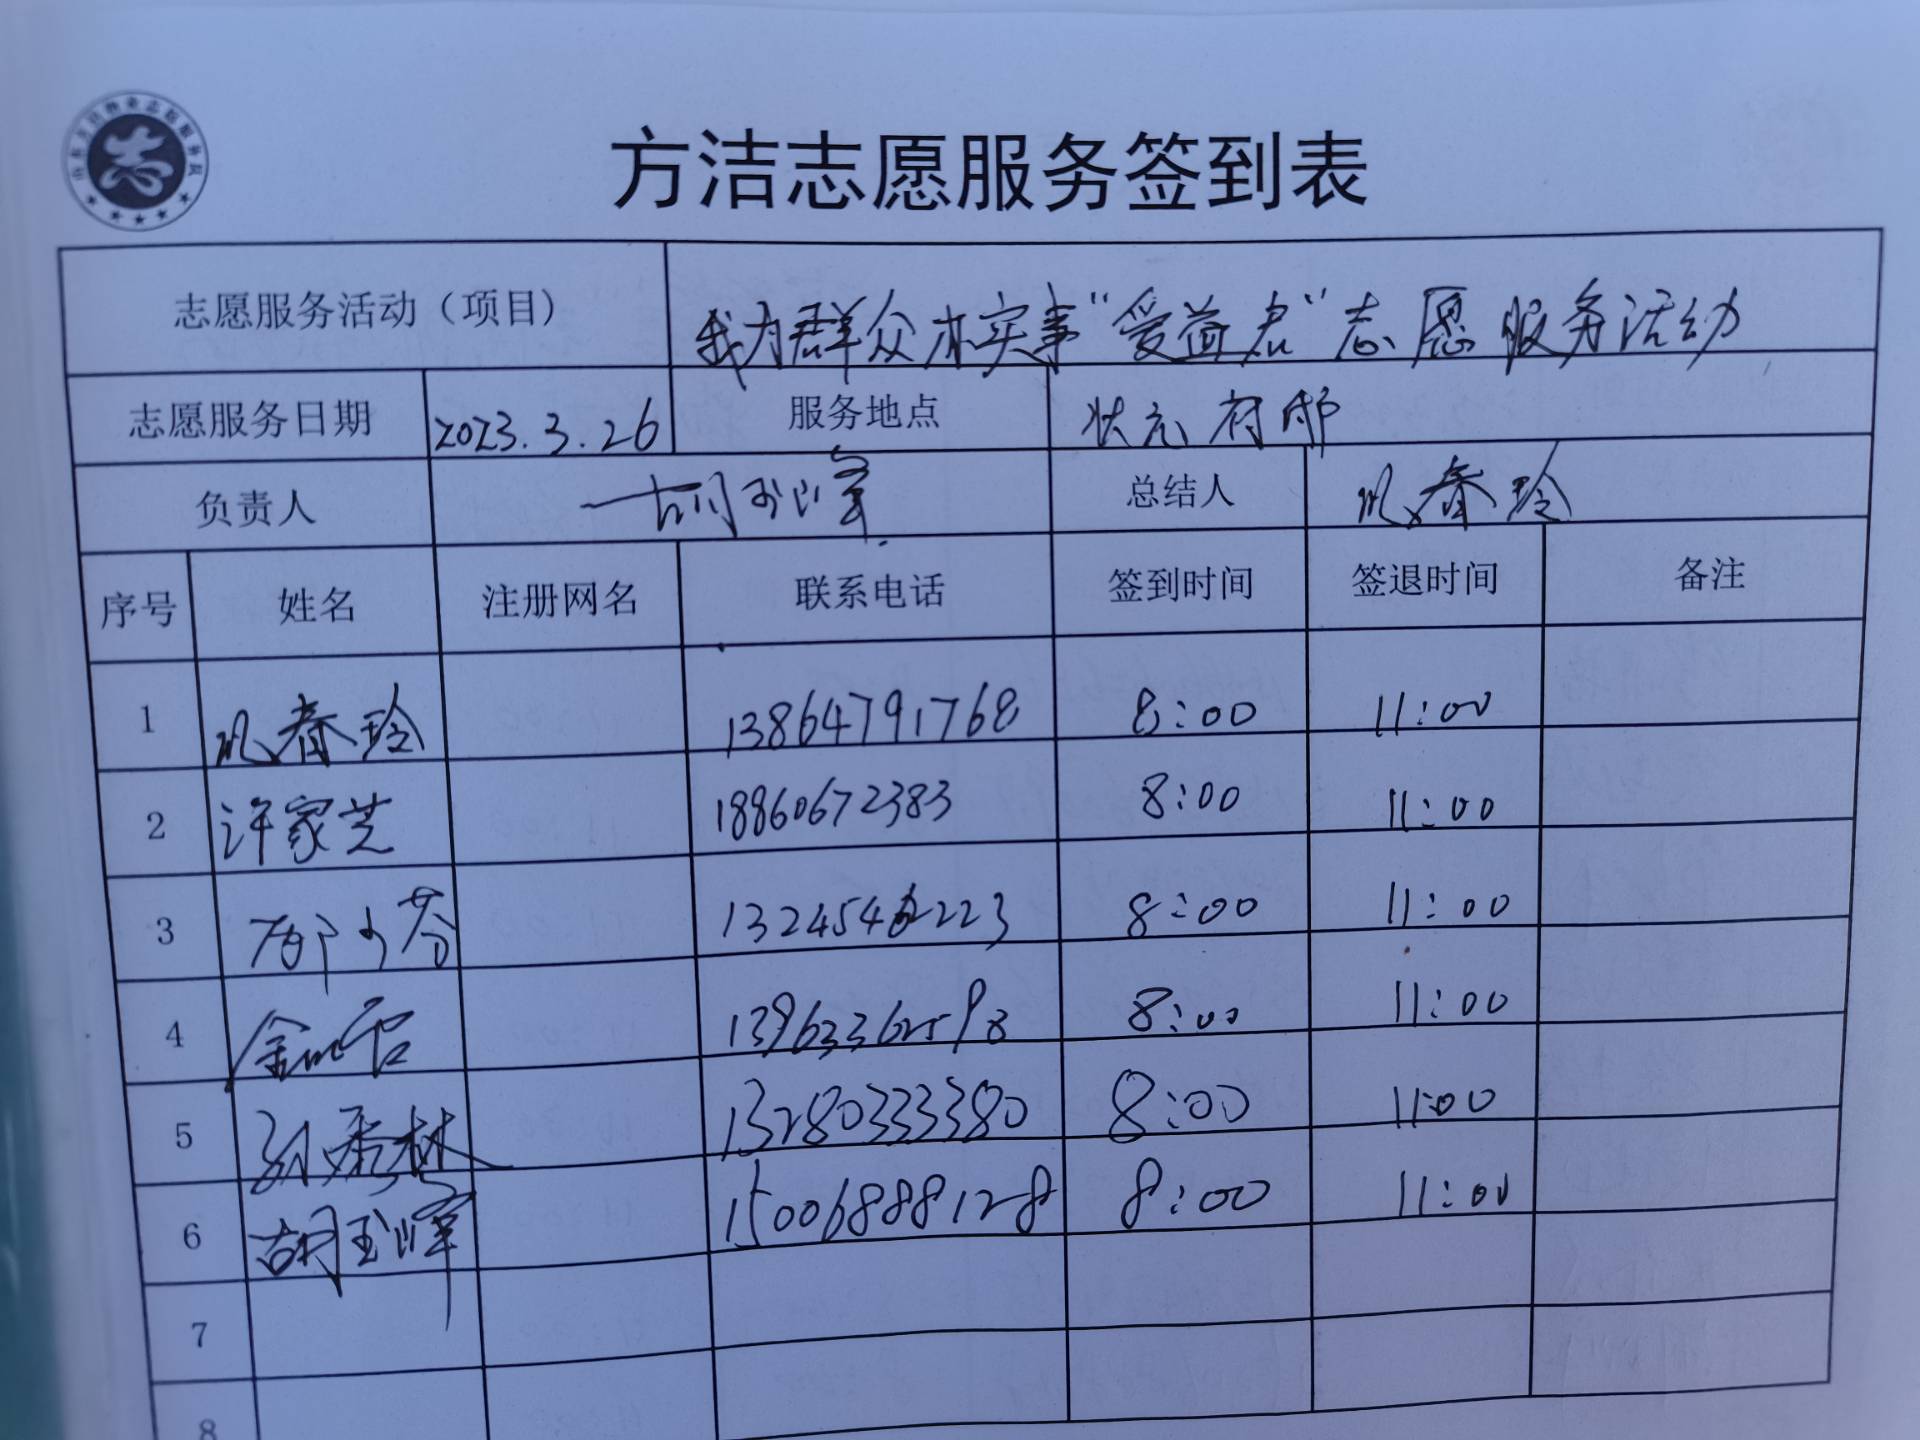 方洁志愿服务签到表
志愿服务活动（项目） 我为群众办实事“爱益君”志愿服务活动
志愿服务日期 2023.3.26 服务地点 状元府邸
负责人 胡玉峰 总结人 春玲
序号 姓名 注册网名 联系电话 签到时间 签退时间 备注
1 春玲 13864791768 8:00 11:00
2 许家芝 18860672383 8:00 11:00
3 8:00 11:00
4 8:00 11:00
5 13280333380 8:00 11:00
6 胡玉峰 15006888128 8:00 11:00
7
8